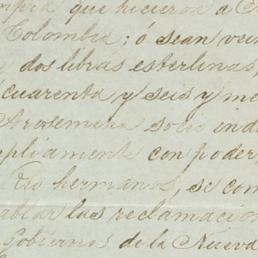 que hicieron a
Colombia; ó sean vein
dos libras esterlinas,
cuarenta y seis y me
Arosemena socio ind
pliament con poder
hermanos, se com
ablar las reclamacio
Gobiernos de la Nueva